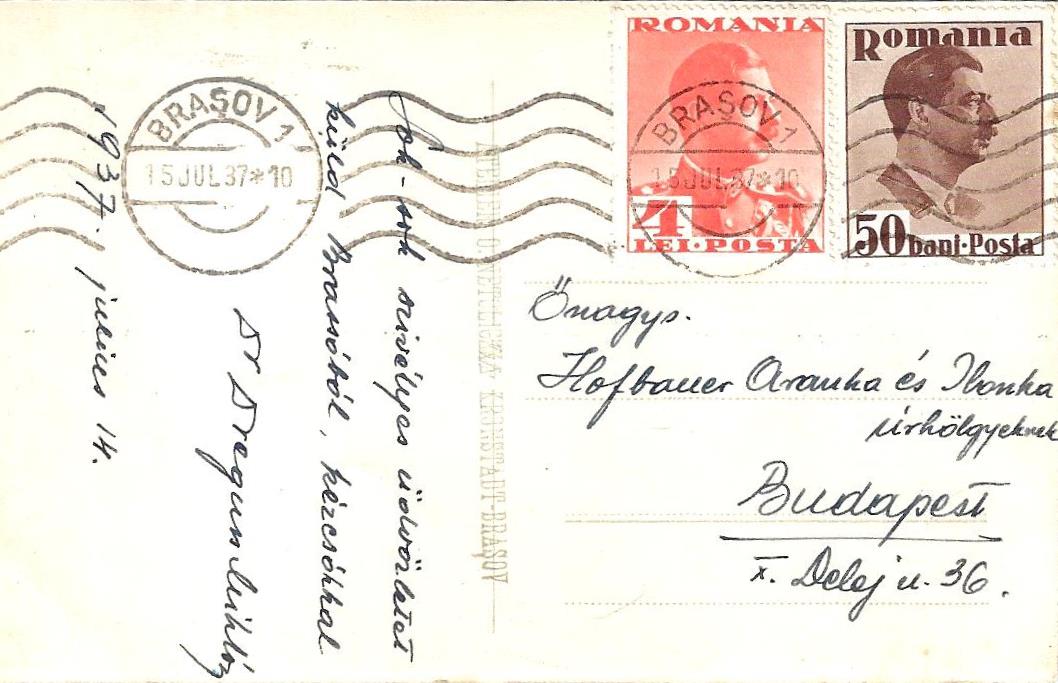 Sok-sok szivélyes üdvözletet
küld Brassóból, kézcsókkal
Dr Dregum
1937. julius 14.
BRAȘOV 1
15 JUL 37 * 10
ROMANIA
4
LEI·POSTA
BRAȘOV 1
15 JUL 37 * 10
Romania
50 bani·Posta
KRONSTADT-BRAȘOV
Önagys.
Hofbauer Aranka és Ilonka
úrhölgyeknek
Budapest
X. Delej u. 36.